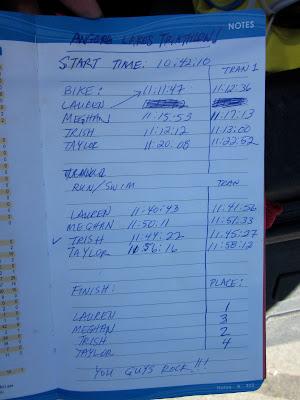 NOTES
ANGORA LAKES TRIATHLON!
START TIME: 10:42:10
TRAN 1
BIKE: 11:11:47 11:12:36
LAUREN
MEGHAN 11:15:53 11:17:13
TRISH 11:12:12 11:13:00
TAYLOR 11:20:08 11:22:52
RUN/SWIM TRAN
LAUREN 11:40:43 11:41:56
MEGHAN 11:50:11 11:51:33
✓ TRISH 11:44:22 11:45:27
TAYLOR 11:56:16 11:58:12
FINISH: PLACE:
LAUREN 1
MEGHAN 3
TRISH 2
TAYLOR 4
YOU GUYS ROCK!!!
Notes